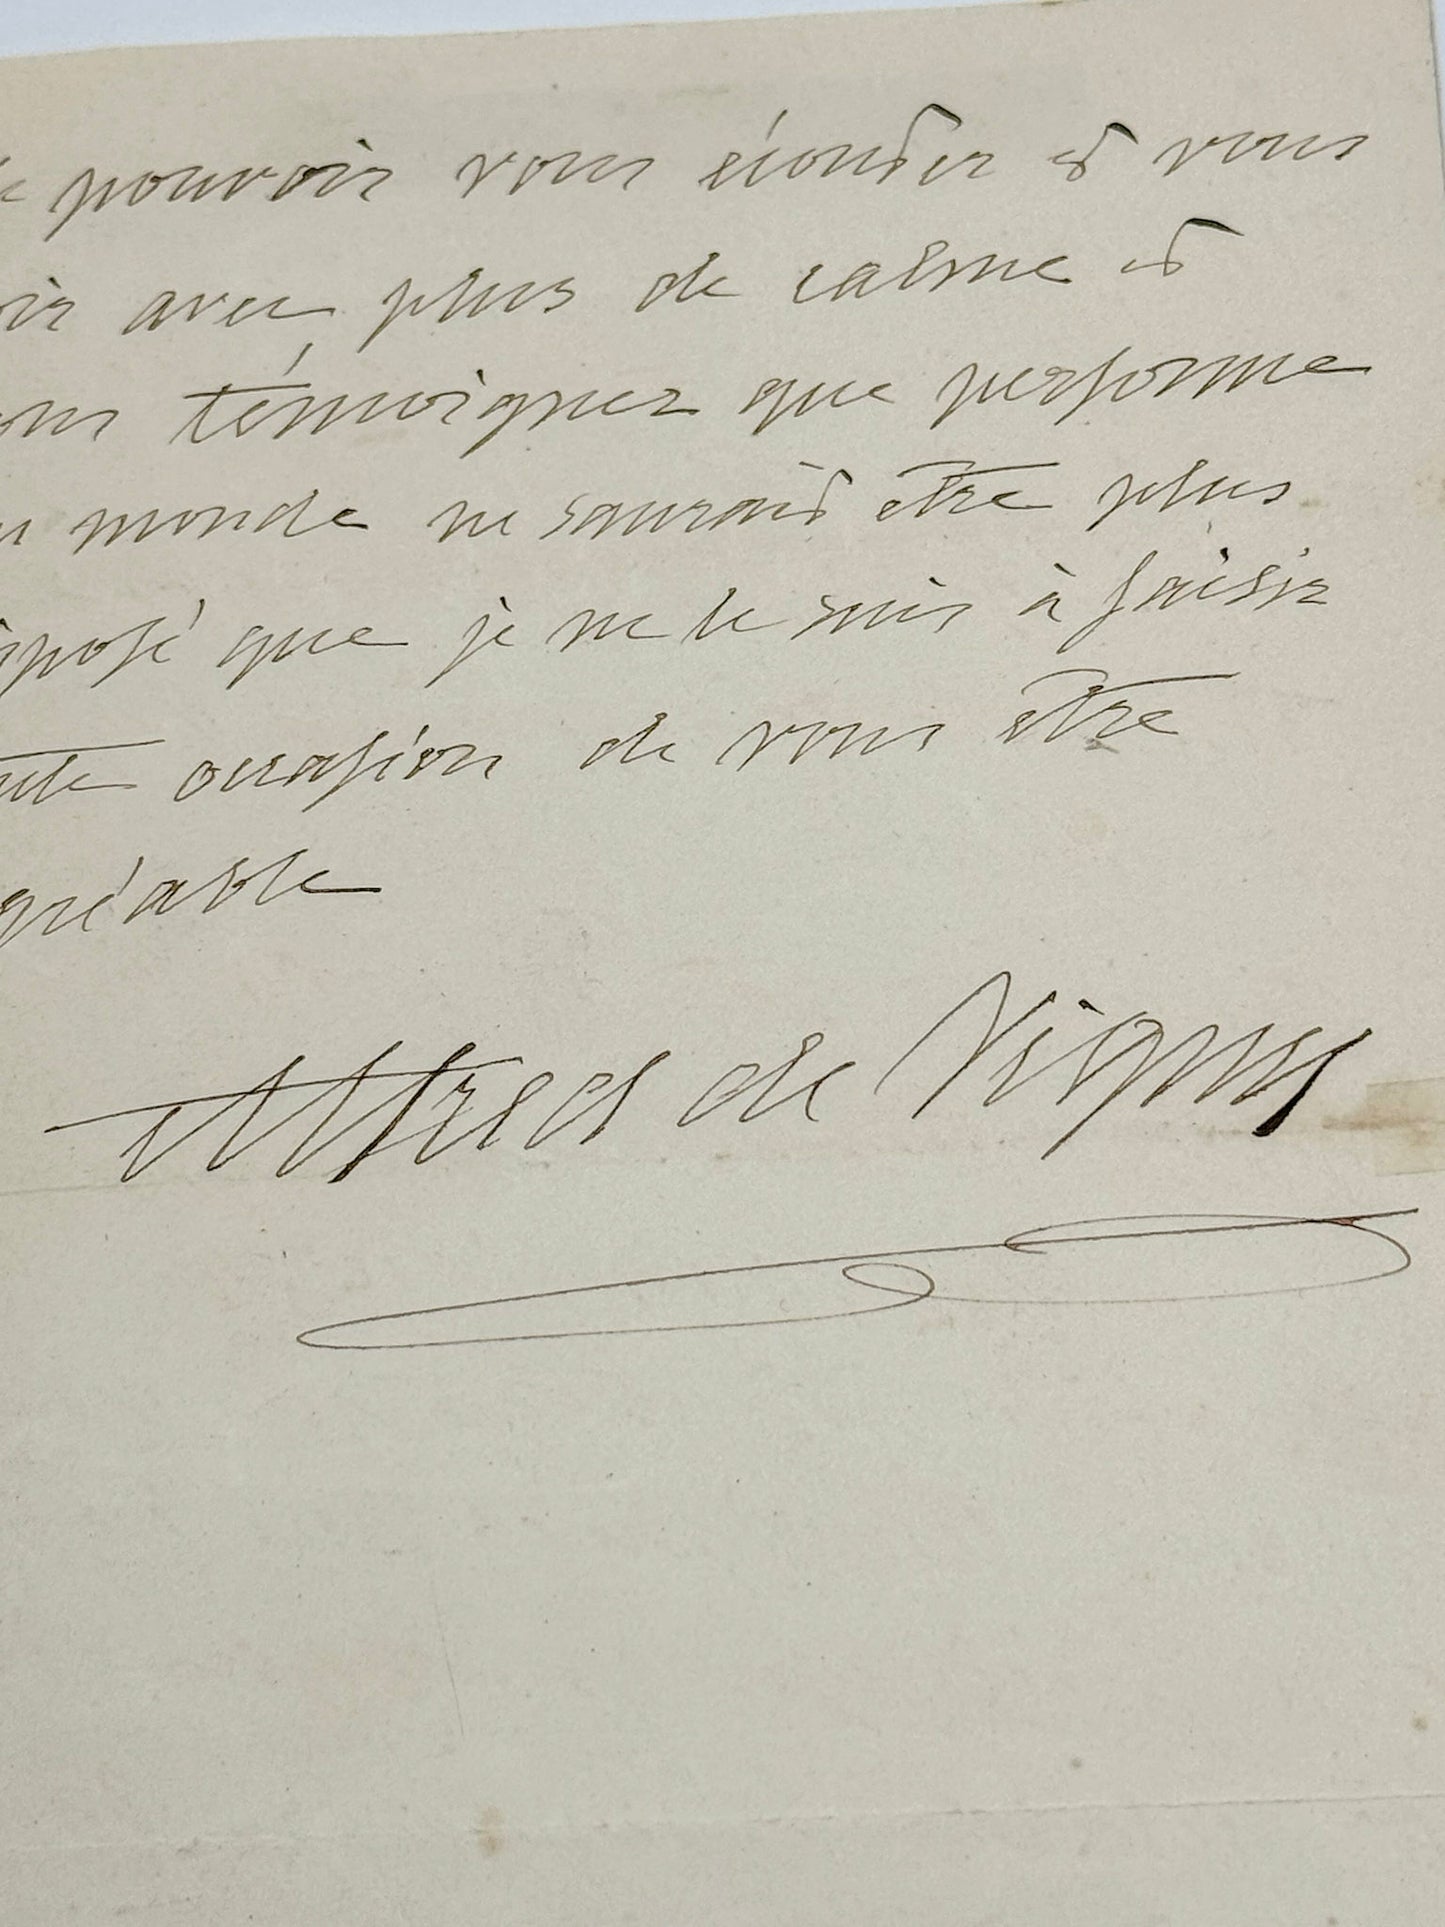 pouvoir vous écouter et vous
avec plus de calme et
témoigner que personne
monde ne saurait être plus
que je ne le suis à saisir
occasion de vous être
gréable
Alfred de Vigny